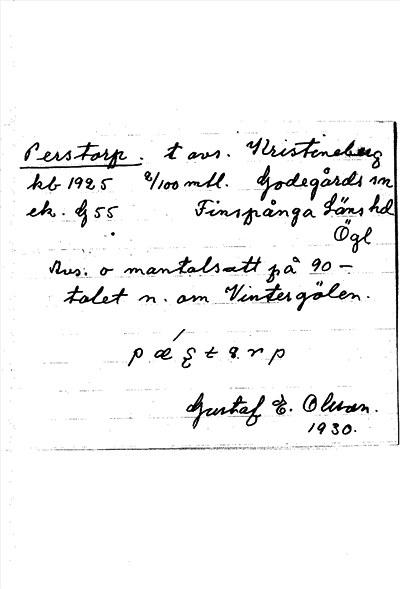 Perstorp. t avs. Kristineberg
kb 1925 2/100 mtl. Godegårds sn
ek. G 55 Finspånga Läns hd
Ögl
Avs. o mantalsatt på 90-
talet n. om Vintergölen.
Gustaf E. Olsson.
1930.